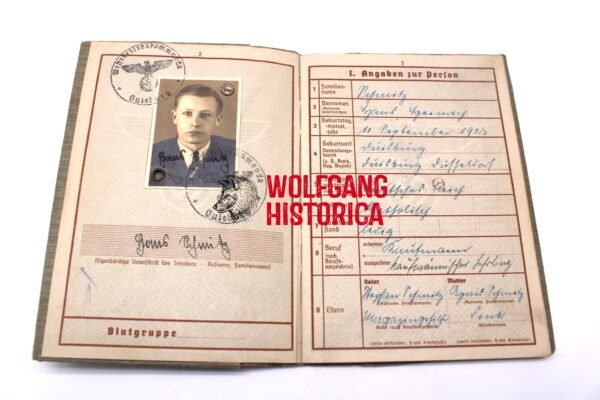 Wehrbezirkskommando
Duisburg
2
Hans Schmitz
Duisburg
Hans Schmitz
(Eigenhändige Unterschrift des Inhabers – Rufname, Familienname)
Blutgruppe
WOLFGANG
HISTORICA
3
I. Angaben zur Person
1 Familien-
name
Schmitz
2 Vornamen
(Rufname
unterstreichen)
Hans Heinrich
3 Geburtstag,
-monat,
-jahr
11. September 1923
4 Geburtsort
Verwaltungs-
bezirk
(z. B. Kreis,
Reg. Bezirk)
Duisburg
Duisburg Düsseldorf
Reich
katholisch
7 stand
ledig
8 Beruf
(nach
Berufs-
verzeichnis)
erlernter
Kaufmann
ausgeübter
kaufmännischer Lehrling
9 Eltern
Vater
Mutter
Schmitz
Agnes Schmitz
(Rufname, Familienname)
Magazingehilfe
Link
Beruf (nach Berufsverzeichnis)
Mädchenname
(wenn verstorben: † und Sterbejahr)
(wenn verstorben: † und Sterbejahr)